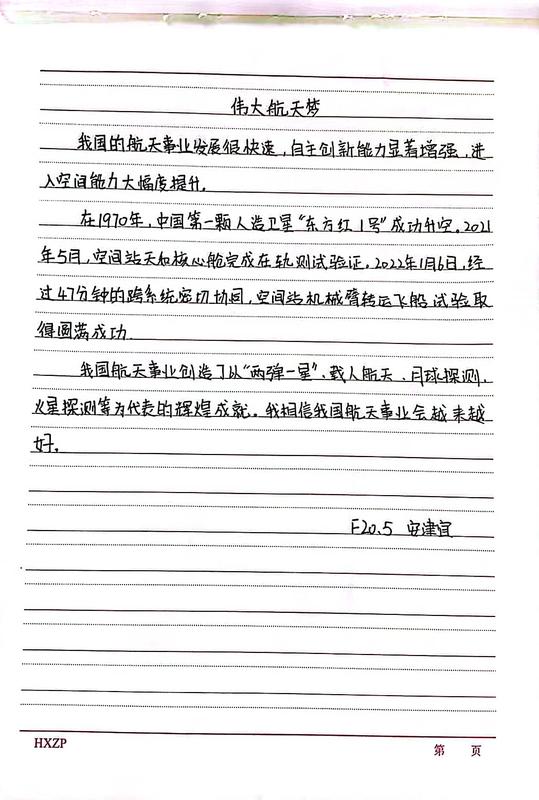 伟大航天梦
我国的航天事业发展很快速，自主创新能力显著增强，进
入空间能力大幅度提升。
在1970年，中国第一颗人造卫星“东方红1号”成功升空。2021
年5月，空间站天和核心舱完成在轨测试验证，2022年1月6日，经
过47分钟的跨系统密切协同，空间站机械臂转运飞船试验取
得圆满成功.
我国航天事业创造了从“两弹一星”、载人航天、月球探测、
火星探测等为代表的辉煌成就。我相信我国航天事业会越来越
好。
F20.5 安津宜
HXZP
第 页